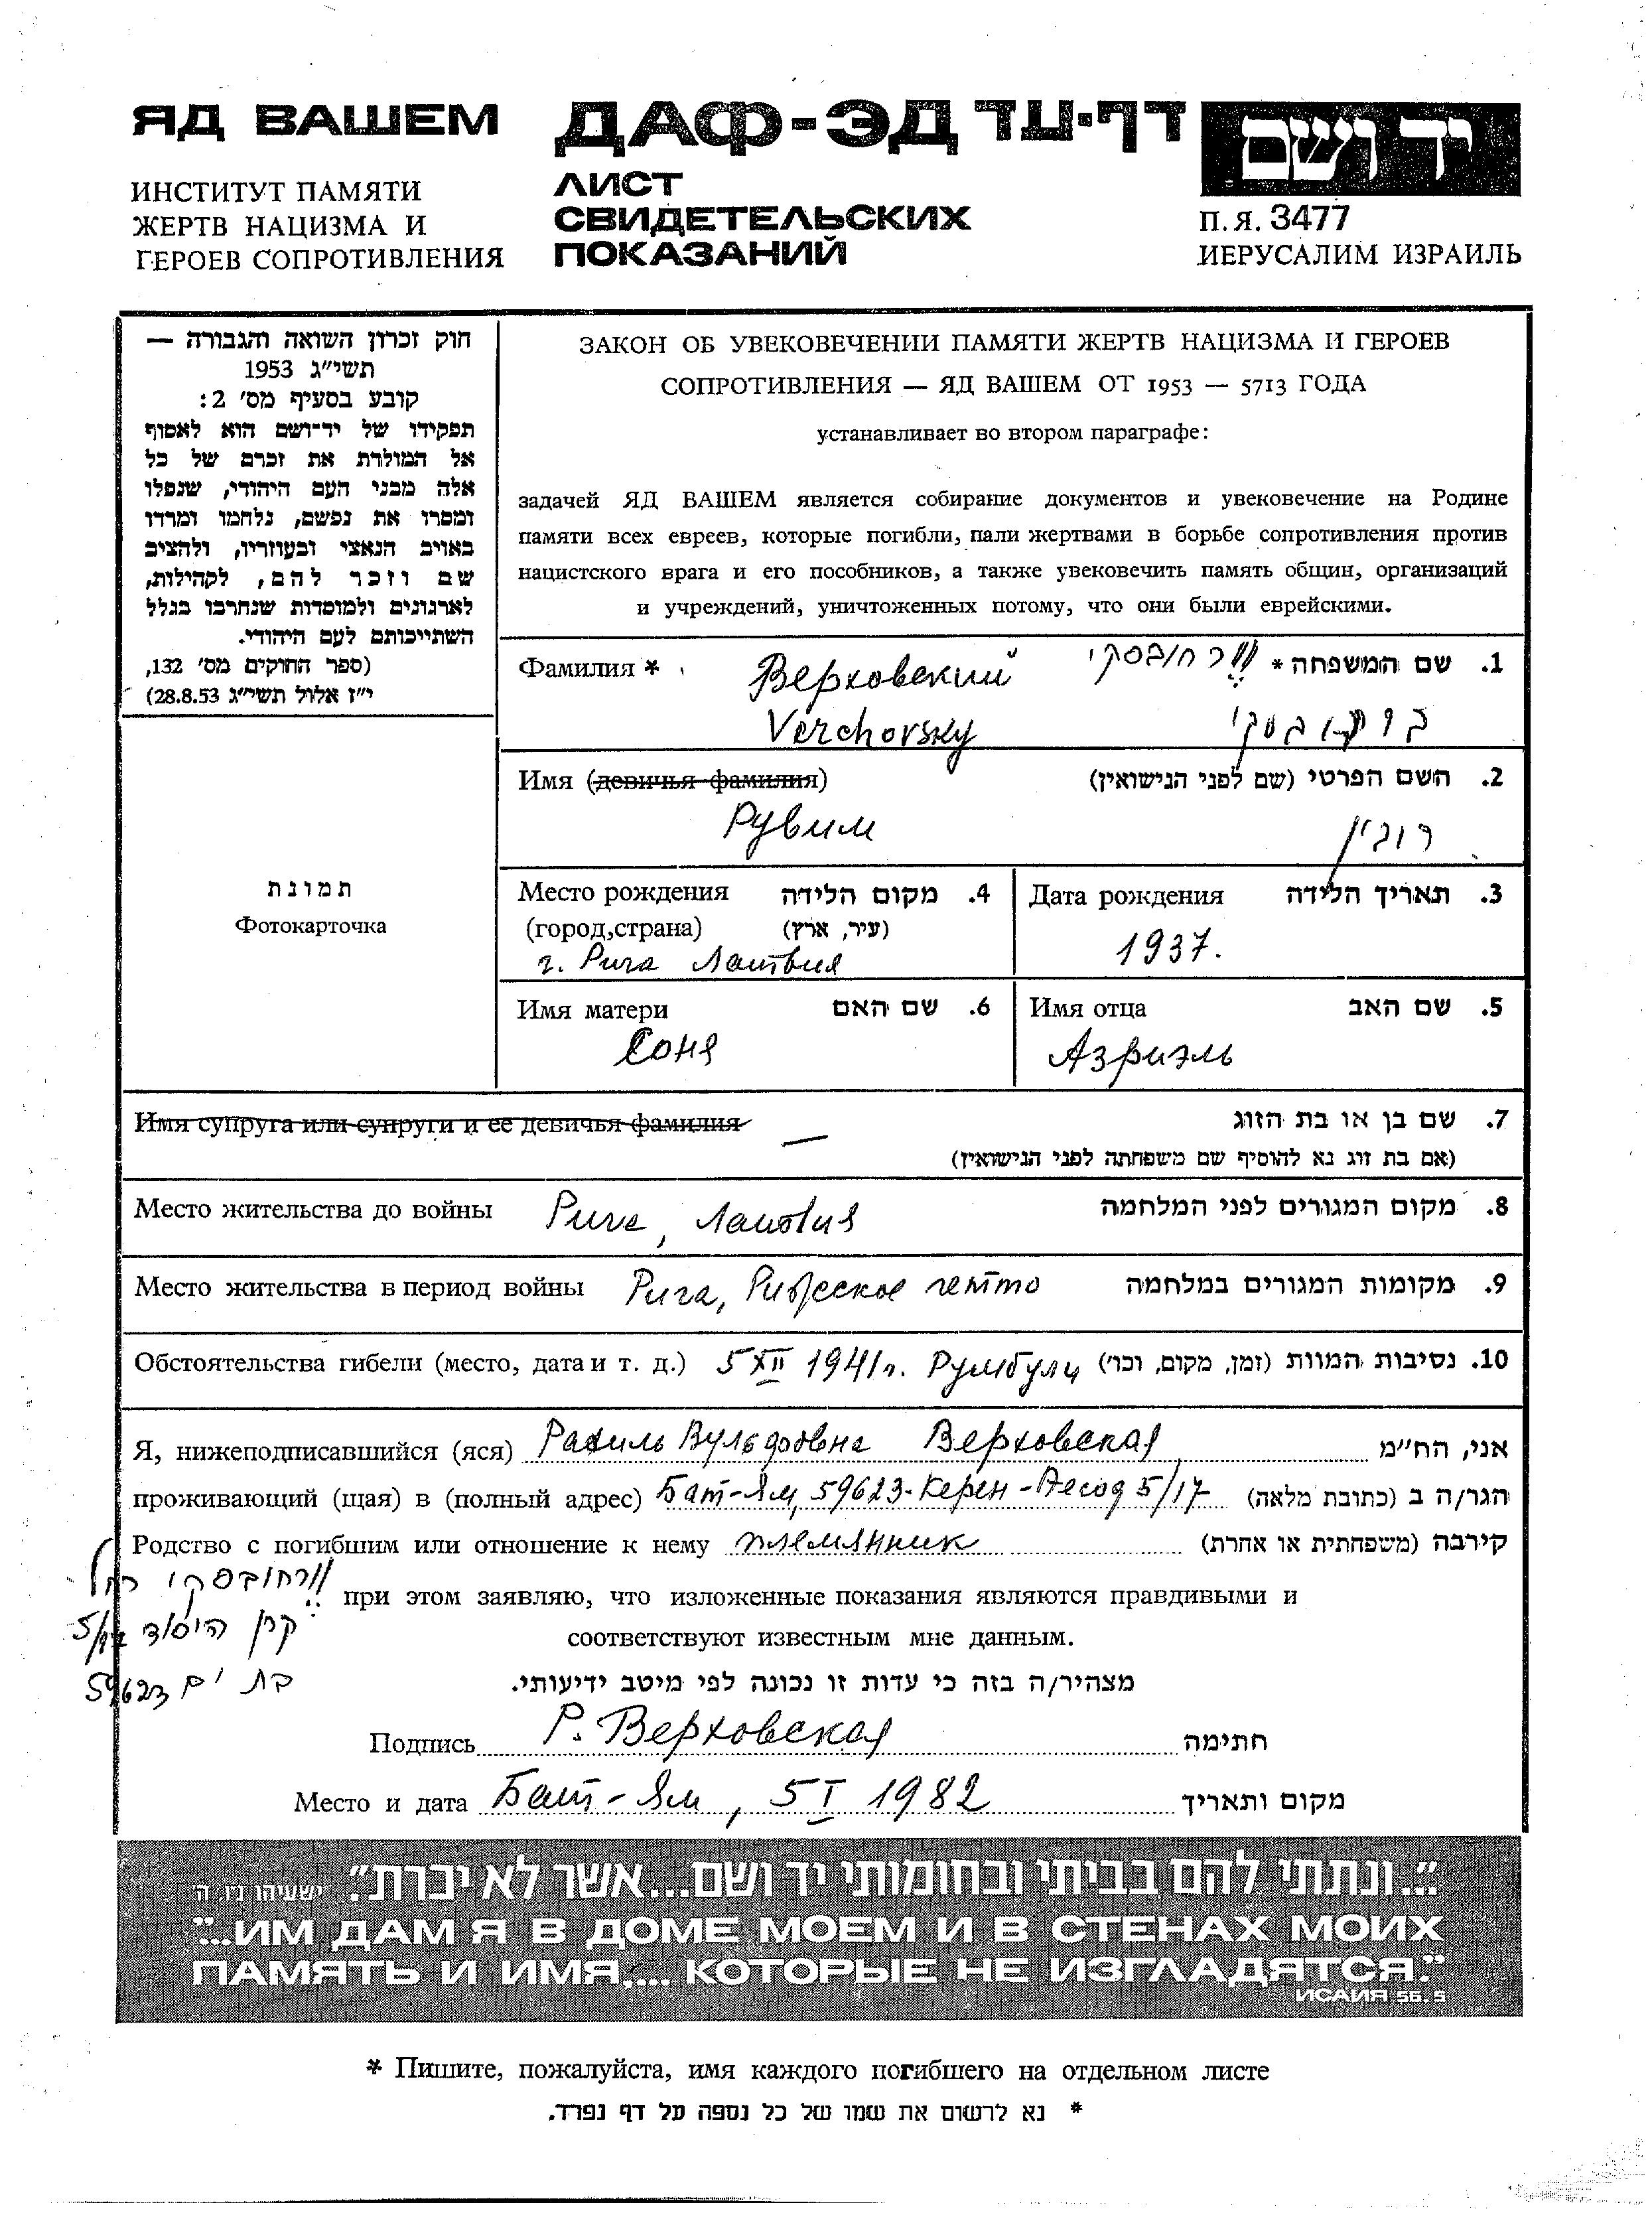 ЯД ВАШЕМ
ИНСТИТУТ ПАМЯТИ
ЖЕРТВ НАЦИЗМА И
ГЕРОЕВ СОПРОТИВЛЕНИЯ
ДАФ-ЭД דף-עד
ЛИСТ
СВИДЕТЕЛЬСКИХ
ПОКАЗАНИЙ
יד ושם
П.Я. 3477
ИЕРУСАЛИМ ИЗРАИЛЬ
חוק זכרון השואה והגבורה —
תשי״ג 1953
קובע בסעיף מס׳ 2:
תפקידו של יד־ושם הוא לאסוף
אל המולדת את זכרם של כל
אלה מבני העם היהודי, שנפלו
ומסרו את נפשם, נלחמו ומרדו
באויב הנאצי ובעוזריו, ולהציב
שם וזכר להם, לקהילות,
לארגונים ולמוסדות שנחרבו בגלל
השתייכותם לעם היהודי.
(ספר החוקים מס׳ 132,
י״ז אלול תשי״ג 28.8.53)
ЗАКОН ОБ УВЕКОВЕЧЕНИИ ПАМЯТИ ЖЕРТВ НАЦИЗМА И ГЕРОЕВ
СОПРОТИВЛЕНИЯ — ЯД ВАШЕМ ОТ 1953 — 5713 ГОДА
устанавливает во втором параграфе:
задачей ЯД ВАШЕМ является собирание документов и увековечение на Родине
памяти всех евреев, которые погибли, пали жертвами в борьбе сопротивления против
нацистского врага и его пособников, а также увековечить память общин, организаций
и учреждений, уничтоженных потому, что они были еврейскими.
Фамилия * Верховский וורחובסקי 1. שם המשפחה *
Verchovsky
Имя (девичья фамилия) 2. השם הפרטי (שם לפני הנישואין)
Рувим רובין
Место рождения 4. מקום הלידה
(город,страна) (עיר, ארץ)
г. Рига Латвия
Дата рождения 3. תאריך הלידה
1937.
Имя матери 6. שם האם
Соня
Имя отца 5. שם האב
Азриэль
תמונת
Фотокарточка
Имя супруга или супруги и ее девичья фамилия — 7. שם בן או בת הזוג
(אם בת זוג נא להוסיף שם משפחתה לפני הנישואין)
Место жительства до войны Рига, Латвия 8. מקום המגורים לפני המלחמה
Место жительства в период войны Рига, Рижское гетто 9. מקומות המגורים במלחמה
Обстоятельства гибели (место, дата и т. д.) 5 XII 1941г. Румбули 10. נסיבות המוות (זמן, מקום, וכו׳)
Я, нижеподписавшийся (яся) Рахиль Вульфовна Верховская אני, הח״מ
проживающий (щая) в (полный адрес) Бат-Ям, 59623-Керен-Аесод 5/17 הגר/ה ב (כתובת מלאה)
Родство с погибшим или отношение к нему племянник קירבה (משפחתית או אחרת)
וורחובסקי רחל
קרן היסוד 5/17
בת ים 59623
при этом заявляю, что изложенные показания являются правдивыми и
соответствуют известным мне данным.
מצהיר/ה בזה כי עדות זו נכונה לפי מיטב ידיעותי.
Подпись Р. Верховская חתימה
Место и дата Бат-Ям, 5 I 1982 מקום ותאריך
״...ונתתי להם בביתי ובחומותי יד ושם...אשר לא יכרת״. ישעיהו נ״ו, ה׳
"...ИМ ДАМ Я В ДОМЕ МОЕМ И В СТЕНАХ МОИХ
ПАМЯТЬ И ИМЯ.... КОТОРЫЕ НЕ ИЗГЛАДЯТСЯ."
ИСАИЯ 56. 5
* Пишите, пожалуйста, имя каждого погибшего на отдельном листе
* נא לרשום את שמו של כל נספה על דף נפרד.